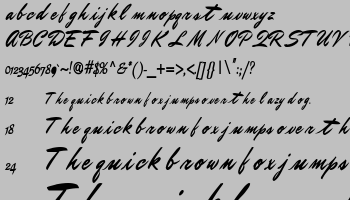 abcdefghijkl mnopqrst uvwxyz
ABCDEFGHIJKLMNOPQRSTUV
0123456789`~!@#$%^&*()-_+=>,<.[]{}|\":;/?
12 The quick brown fox jumps over the lazy dog.
18 The quick brown fox jumps over the
24 The quick brown fox jumps